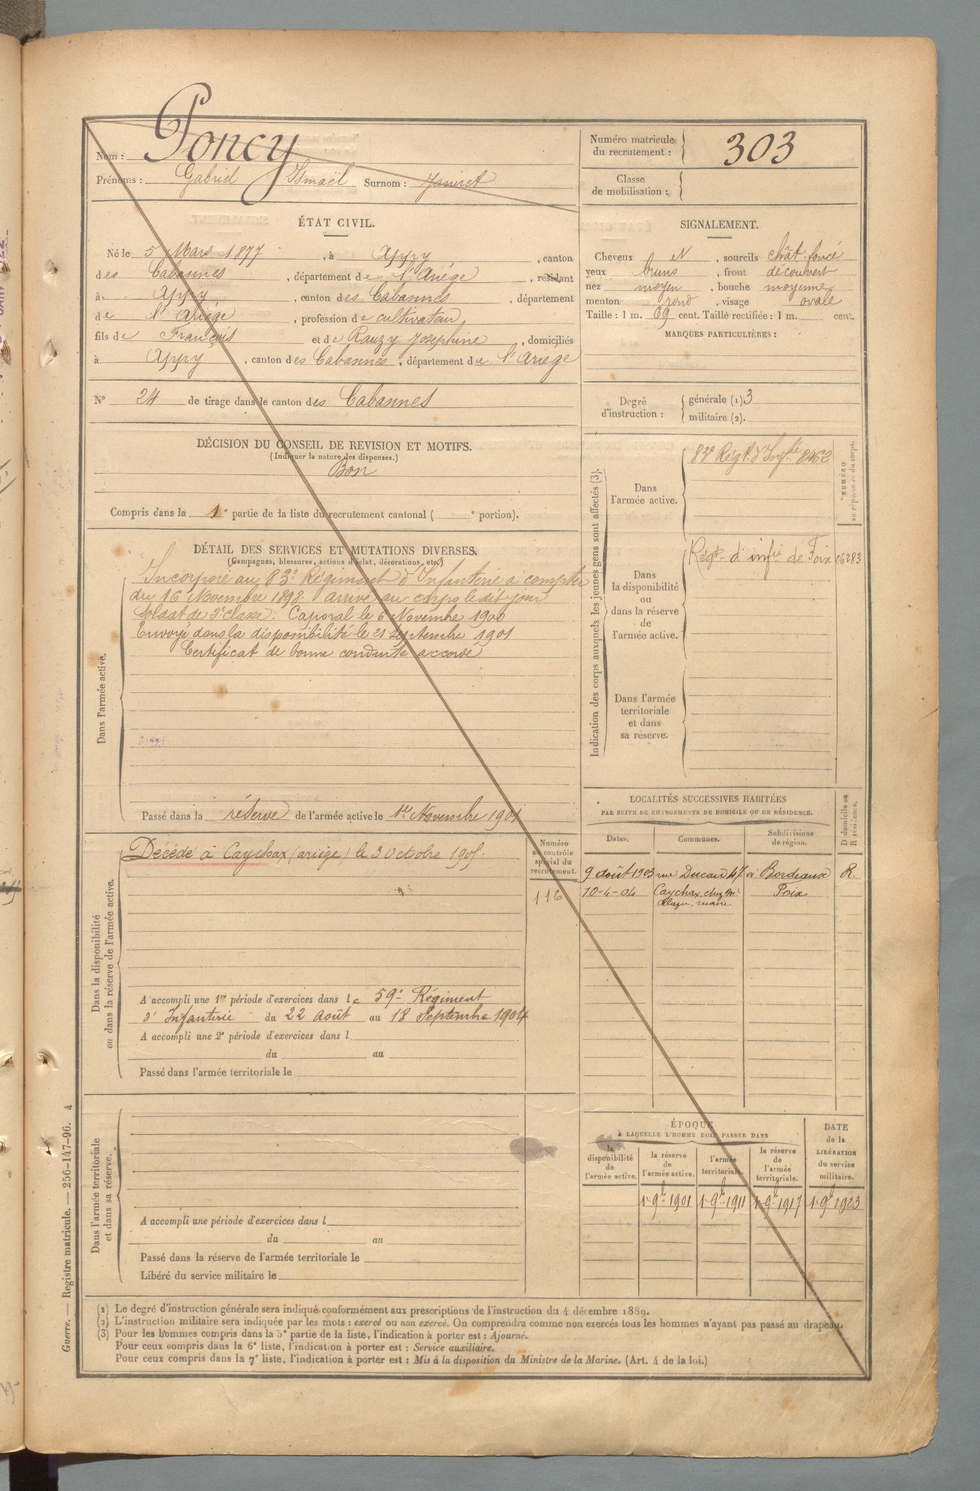 Nom : Poncy
Prénoms : Gabriel Ismaël Surnom :
Numéro matricule du recrutement : 303
Classe de mobilisation :
ÉTAT CIVIL.
Né le 5 Mars 1877, à Appy, canton
des Cabannes, département de l'Ariège, résidant
à Appy, canton des Cabannes, département
de l'Ariège, profession de cultivateur
fils de François et de Rauzy Joséphine, domiciliés
à Appy, canton des Cabannes, département de l'Ariège
N° 24 de tirage dans le canton des Cabannes
SIGNALEMENT.
Cheveux N, sourcils chât-foncé
yeux bruns, front découvert
nez moyen, bouche moyenne
menton rond, visage ovale
Taille : 1 m. 69 cent. Taille rectifiée : 1 m. cent.
MARQUES PARTICULIÈRES :
Degré d'instruction : générale (1). 3
militaire (2).
DÉCISION DU CONSEIL DE REVISION ET MOTIFS.
(Indiquer la nature des dispenses.)
Bon
Compris dans la 1e partie de la liste du recrutement cantonal ( e portion).
DÉTAIL DES SERVICES ET MUTATIONS DIVERSES.
(Campagnes, blessures, actions d'éclat, décorations, etc.)
Dans l'armée active.
Incorporé au 83e Régiment d'Infanterie à compter
du 16 Novembre 1898 arrivé au corps le dit jour
Soldat de 2e classe. Caporal le 6 Novembre 1900
Envoyé dans la disponibilité le 21 Septembre 1901
Certificat de bonne conduite accordé
Passé dans la réserve de l'armée active le 1er Novembre 1901
Indication des corps auxquels les jeunes gens sont affectés (3).
NUMÉRO au répertoire du corps.
Dans l'armée active.
83e Régt d'Infrie 8462
Dans la disponibilité ou dans la réserve de l'armée active.
Régt d'infie de Foix 16283
Dans l'armée territoriale et dans sa réserve.
Dans la disponibilité ou dans la réserve de l'armée active.
Décédé à Caychax (ariège) le 3 Octobre 1905.
Numéro au contrôle spécial du recrutement.
116
A accompli une 1re période d'exercices dans le 59e Régiment
d'Infanterie du 22 Août au 18 Septembre 1904
A accompli une 2e période d'exercices dans l
du au
Passé dans l'armée territoriale le
LOCALITÉS SUCCESSIVES HABITÉES
PAR SUITE DE CHANGEMENTS DE DOMICILE OU DE RÉSIDENCE.
Dates. Communes. Subdivisions de région. D domicile ou R résidence.
9 août 1903 rue Ducau 47 à Bordeaux R.
10-4-04 Caychax, chez Mr maire Foix
Dans l'armée territoriale et dans sa réserve.
A accompli une période d'exercices dans l
du au
Passé dans la réserve de l'armée territoriale le
Libéré du service militaire le
ÉPOQUE
À LAQUELLE L'HOMME DOIT PASSER DANS
la disponibilité de l'armée active.
la réserve de l'armée active.
l'armée territoriale.
la réserve de l'armée territoriale.
DATE de la LIBÉRATION du service militaire.
1-9b 1901 1-9b 1911 1-9b 1917 1-9b 1923
(1) Le degré d'instruction générale sera indiqué conformément aux prescriptions de l'instruction du 4 décembre 1889.
(2) L'instruction militaire sera indiquée par les mots : exercé ou non exercé. On comprendra comme non exercés tous les hommes n'ayant pas passé au drapeau.
(3) Pour les hommes compris dans la 5e partie de la liste, l'indication à porter est : Ajourné.
Pour ceux compris dans la 6e liste, l'indication à porter est : Service auxiliaire.
Pour ceux compris dans la 7e liste, l'indication à porter est : Mis à la disposition du Ministre de la Marine. (Art. 4 de la loi.)
Guerre. — Registre matricule. — 256-147-96. 4